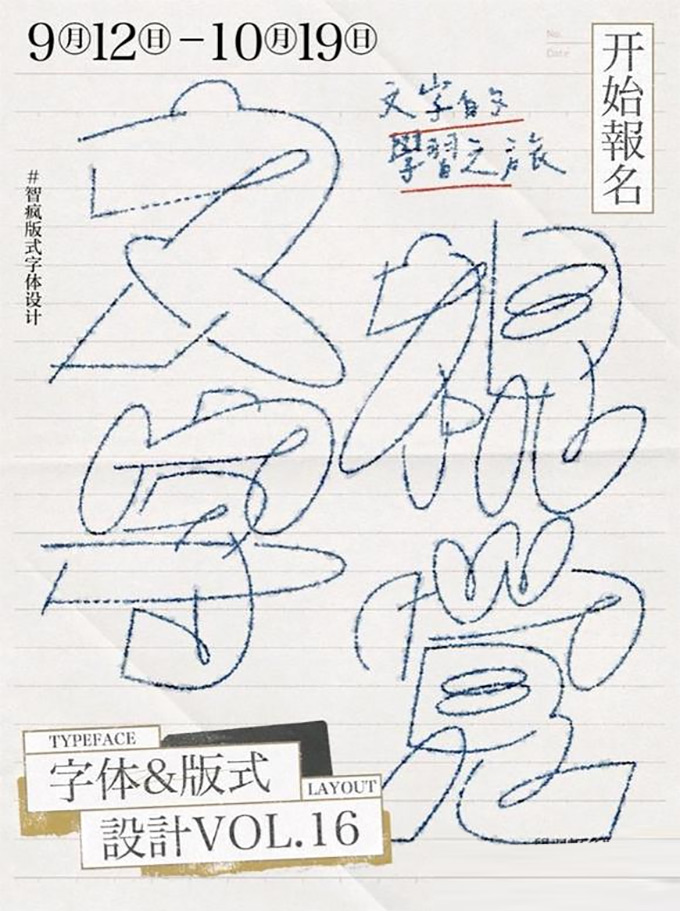 9月12日-10月19日
No.
Date
开始報名
文字的
學習之旅
#智疯版式字体设计
文字
視覺
TYPEFACE
字体&版式
LAYOUT
設計VOL.16